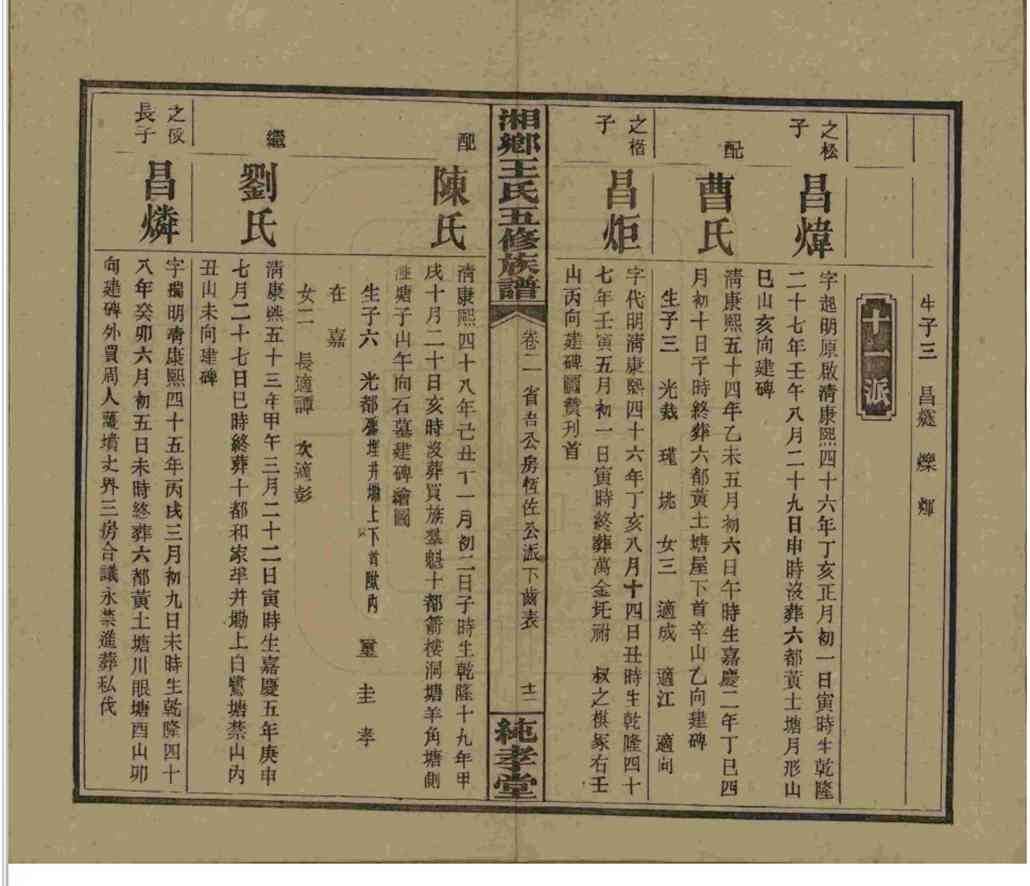 生子三 昌 爍 煇
十一派
之松子
昌煒
字起明原啟清康熙四十六年丁亥正月初一日寅時生乾隆
二十七年壬午八月二十九日申時沒葬六都黃土塘月形山
巳山亥向建碑
配
曹氏
清康熙五十四年乙未五月初六日午時生嘉慶二年丁巳四
月初十日子時終葬六都黃土塘屋下首辛山乙向建碑
生子三 光裁 女三 適成 適江 適向
之楷子
昌炬
字代明清康熙四十六年丁亥八月十四日丑時生乾隆四十
七年壬寅五月初一日寅時終葬萬金坵祔 叔之棋冢右壬
山丙向建碑圖贊刊首
湘鄉王氏五修族譜
卷二 省吾公房恆佐公派下齒表
十二
純孝堂
配
陳氏
清康熙四十八年己丑十一月初二日子時生乾隆十九年甲
戌十月二十日亥時沒葬買族羣魁十都箭樓洞塘羊角塘側
塘子山午向石墓建碑繪圖
生子六 光都 井墈上下首 內 璽 圭 孝
在 嘉
女二 長適譚 次適彭
繼
劉氏
清康熙五十三年甲午三月二十二日寅時生嘉慶五年庚申
七月二十七日巳時終葬十都和家坪井墈上白鷺塘禁山內
丑山未向建碑
之伋長子
昌燐
字瑞明清康熙四十五年丙戌三月初九日未時生乾隆四十
八年癸卯六月初五日未時終葬六都黃土塘川眼塘酉山卯
向建碑外買周人護墳丈界三房合議永禁進葬私伐